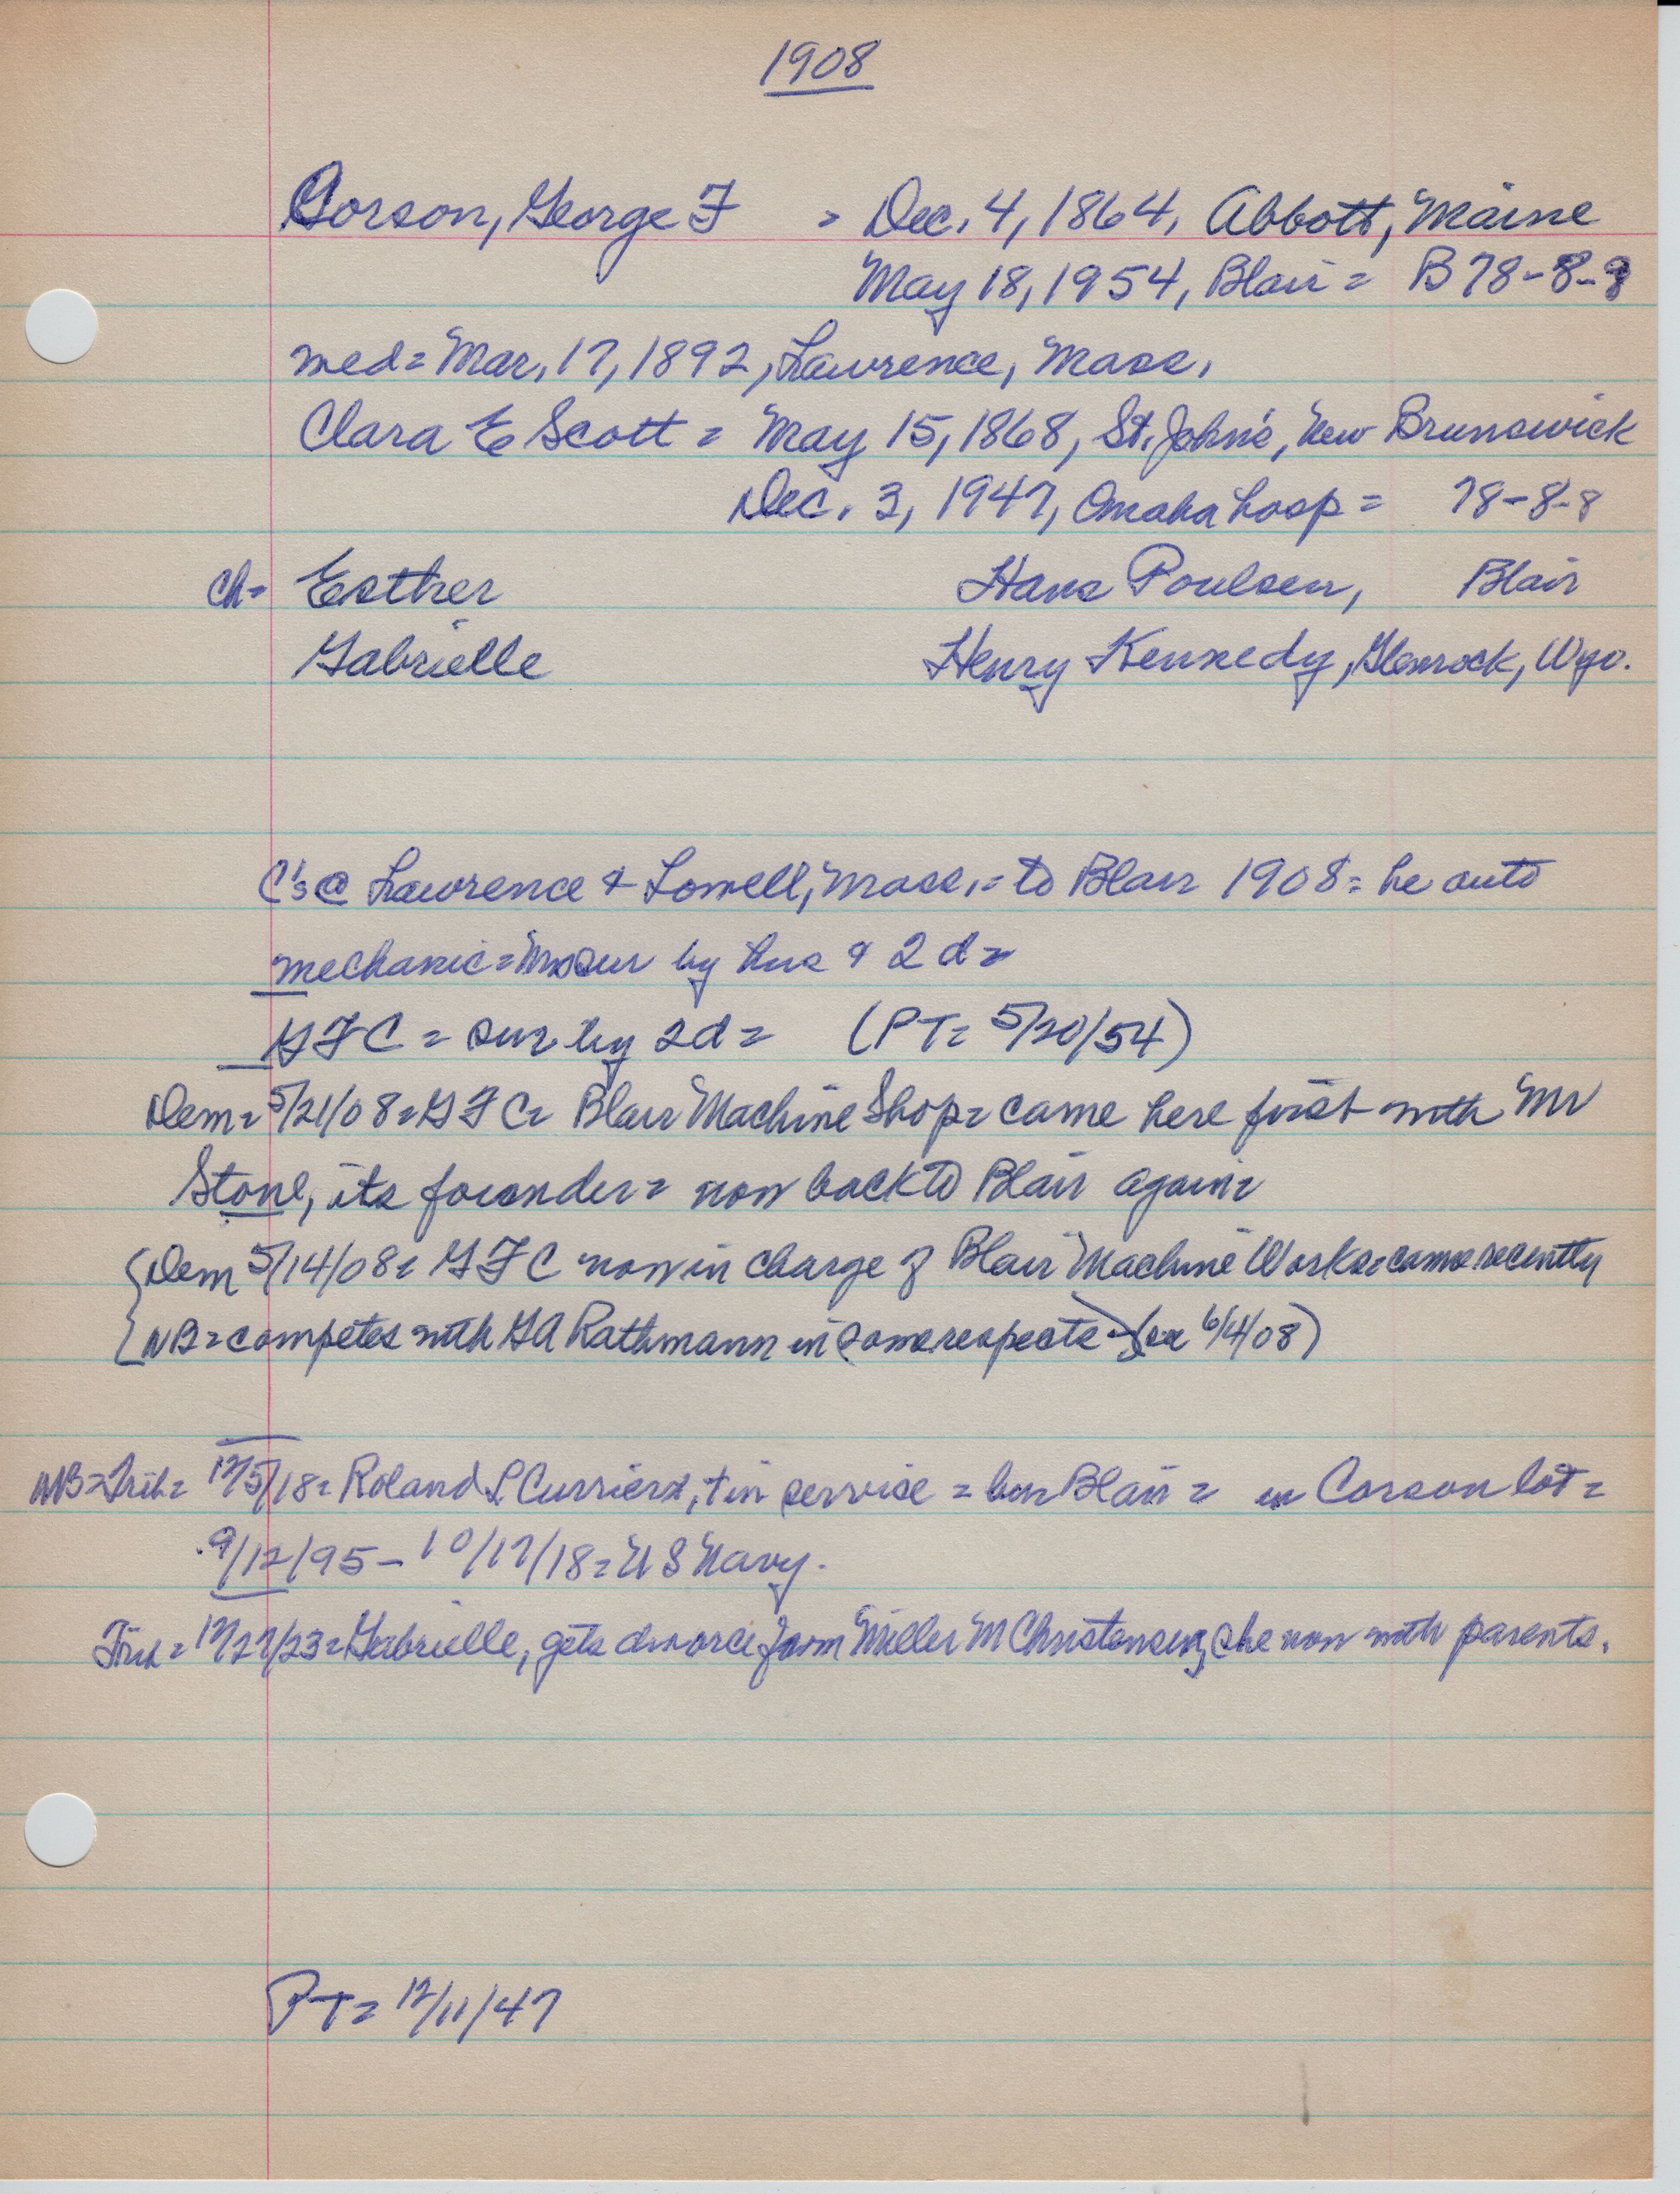 1908
Corson, George F = Dec. 4, 1864, Abbott, Maine
May 18, 1954, Blair = B 78-8-8
med = Mar. 17, 1892, Lawrence, Mass.
Clara E Scott = May 15, 1868, St. John's, New Brunswick
Dec. 3, 1947, Omaha hosp = 78-8-8
ch= Esther Hans Poulsen, Blair
Gabrielle Henry Kennedy, Glenrock, Wyo.
C's @ Lawrence & Lowell, Mass. = to Blair 1908 = he auto
mechanic = Mrs sur by hus & 2 d =
GFC = sur by 2d = (PT= 5/20/54)
Dem = 5/21/08 = GFC = Blair Machine Shop = came here first with Mr
Stone, its founder = now back to Blair again =
{Dem 5/14/08 = GFC now in charge of Blair Machine Works = came recently
{NB = competes with GA Rathmann in some respects - (see 6/4/08)
NB = Trib = 12/5/18 = Roland S. Currier, in service = bur Blair = in Corson lot =
9/12/95 - 10/17/18 = U S Navy.
Trib = 12/27/23 = Gabrielle, gets divorce from Miller M Christensen, she now with parents.
PT = 12/11/47